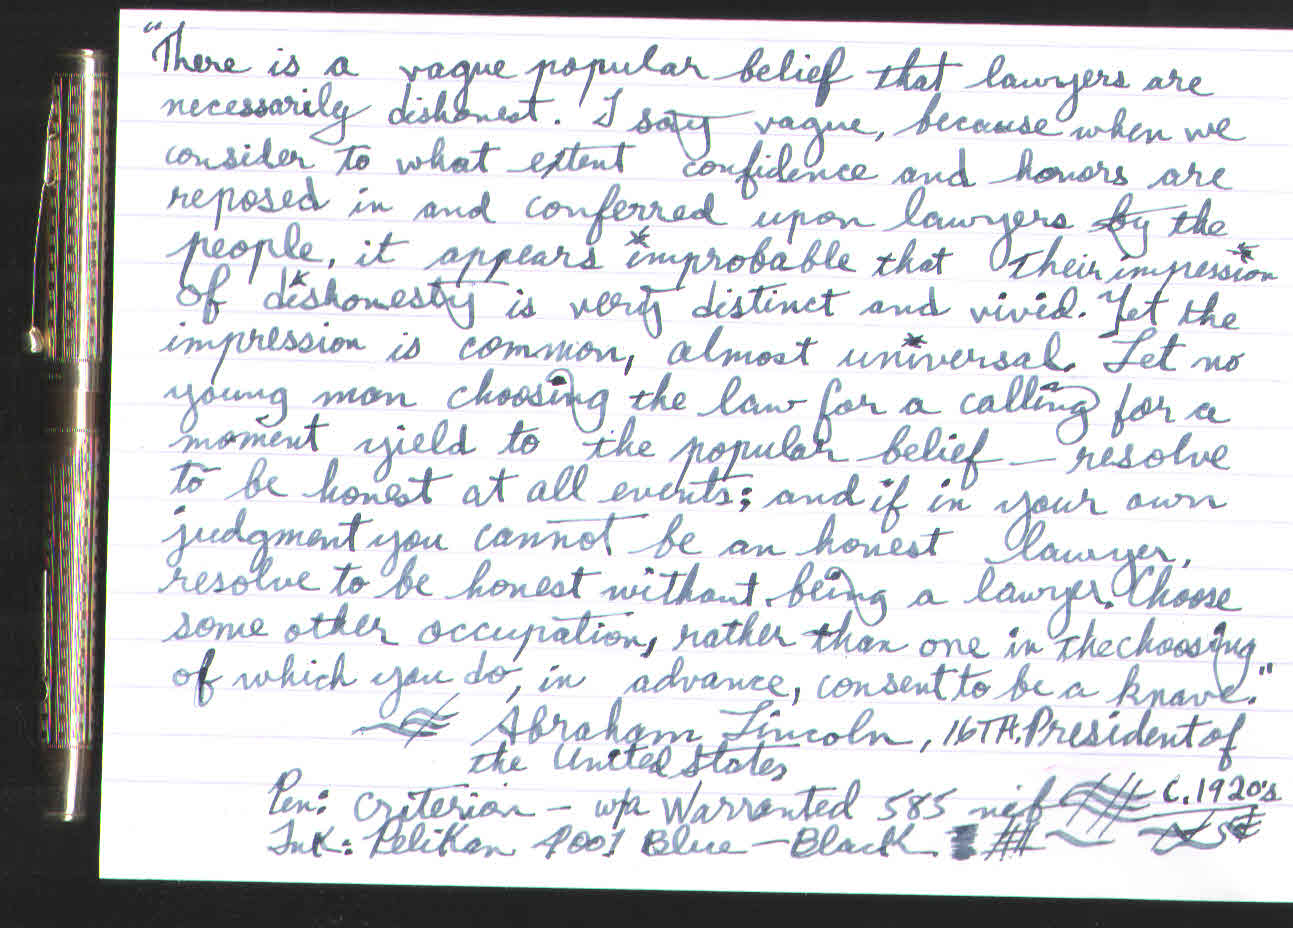 "There is a vague popular belief that lawyers are
necessarily dishonest. I say vague, because when we
consider to what extent confidence and honors are
reposed in and conferred upon lawyers by the
people, it appears improbable that their impression
of dishonesty is very distinct and vivid. Yet the
impression is common, almost universal. Let no
young man choosing the law for a calling for a
moment yield to the popular belief — resolve
to be honest at all events; and if in your own
judgment you cannot be an honest lawyer,
resolve to be honest without being a lawyer. Choose
some other occupation, rather than one in the choosing
of which you do, in advance, consent to be a knave."
Abraham Lincoln, 16TH. President of
the United States
Pen: Criterion - w/a Warranted 585 nib c. 1920's
Ink: Pelikan 4001 Blue-Black